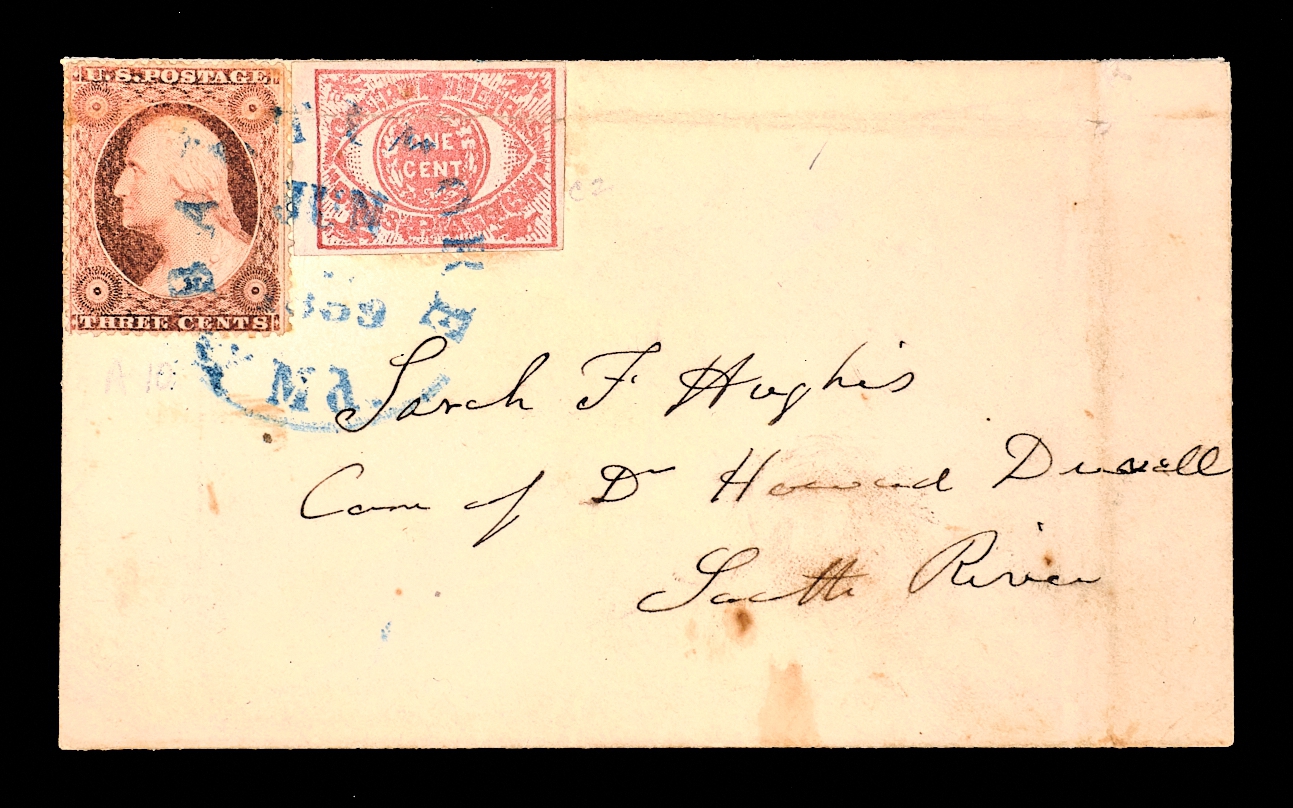 U.S. POSTAGE
THREE CENTS
ONE
CENT
BALTIMORE
JUN
1859
Md.
A 10
Sarah F Hughis
Care of Dr Howard Duvall
South River